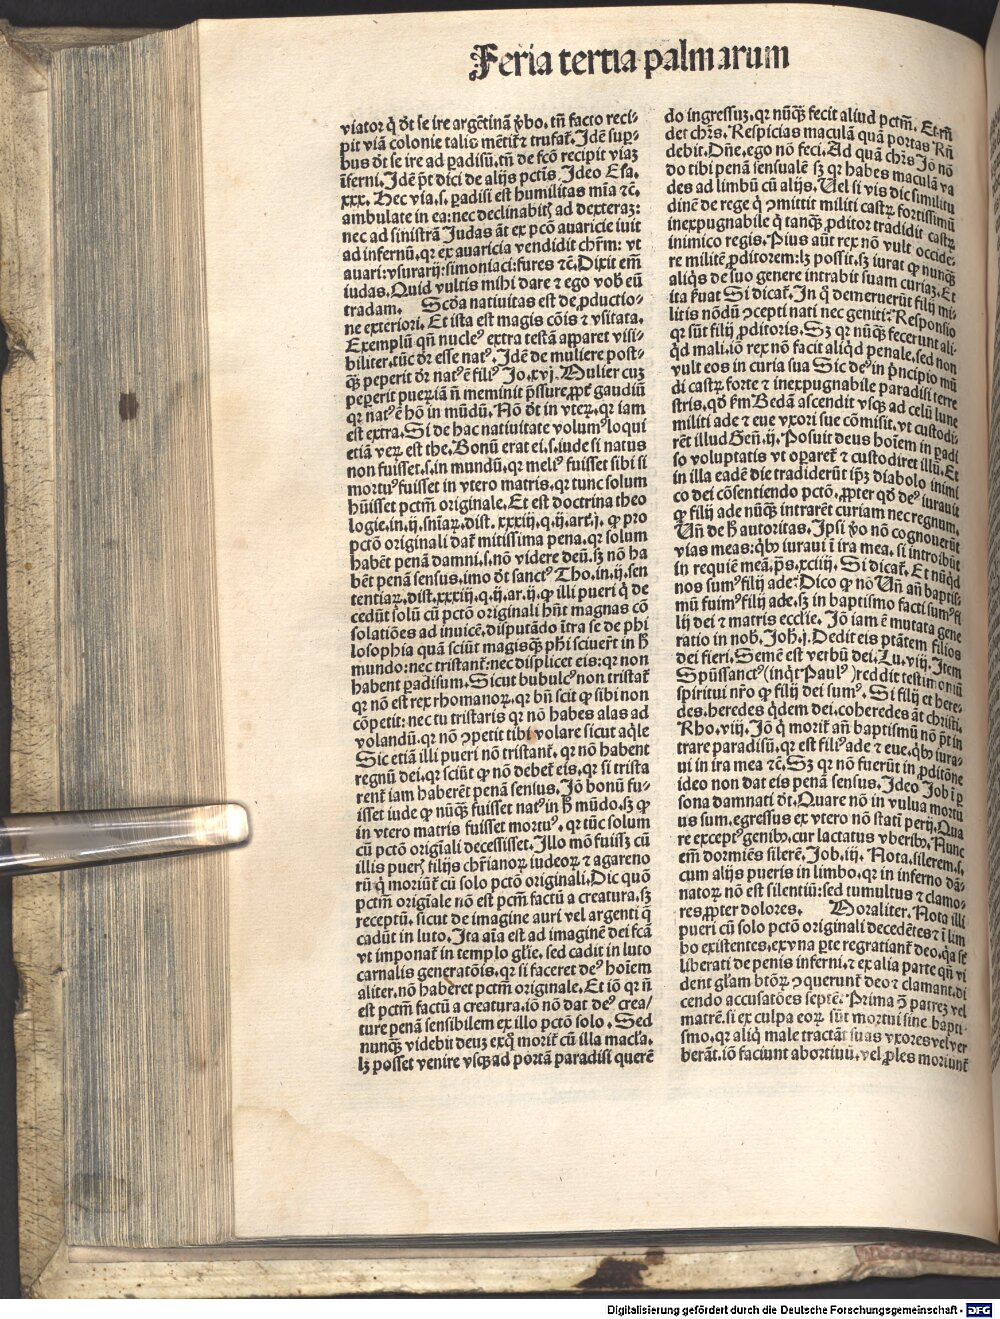 Feria tertia palmarum
viator q̃ dt̃ se ire argẽtinã ṽbo, tñ facto reci-
pit viã colonie talis mẽtit᷑ ⁊ trufat᷑. Idẽ sup̱-
bus dt̃ se ire ad p̱adisũ, tñ de fcõ recipit viaȝ
ĩferni. Idẽ p̃t dici de alijs pctĩs. Ideo Esa.
xxx. Hec via .s. p̱adisi est humilitas mĩa ⁊c̃.
ambulate in ea: nec declinabitꝭ ad dexteraȝ:
nec ad sinistrã Iudas ãt ex pcõ avaricie iuit
ad infernũ, qꝛ ex auaricia vendidit chr̃m: vt
auari: vsurarij: simoniaci: fures ⁊c̃. Dixit em̃
iudas. Quid vultis mihi dare ⁊ ego vob̃ eũ
tradam. Scđa natiuitas est de ꝓductio-
ne exteriori. Et ista est magis cõis ⁊ vsitata.
Exemplũ qñ nucleꝰ extra testã apparet visi-
biliter, tũc dr̃ esse natꝰ. Idẽ de muliere post-
qȝ̃ peperit dr̃ natꝰ ẽ filiꝰ Jo. xvj. Mulier cuȝ
peperit pueꝝ iã ñ meminit p̃ssure, ꝓpt̃ gaudiũ
qꝛ natꝰ ẽ hõ in mũdũ. Nõ dt̃ in vteꝝ, qꝛ iam
est extra. Si de hac natiuitate volumꝰ loqui
etiã veꝝ est the. Bonũ erat ei .s. iude si natus
non fuisset .s. in mundũ, qꝛ meliꝰ fuisset sibi si
mortuꝰ fuisset in vtero matris, qꝛ tunc solum
hũisset pctm̃ originale. Et est doctrina theo
logie, in .ij. snĩaꝝ, dist. xxxiij, q. ij, ar. j. ꝙ pro
pctõ originali dat᷑ mitissima pena, qꝛ solum
habẽt penã damni .s. nõ videre deũ, sȝ nõ ha
bẽt penã sensus, imo dt̃ sanctꝰ Tho. in .ij. sen
tentiaꝝ, dist. xxxiij, q. ij, ar. ij, ꝙ illi pueri q̃ de
cedũt solũ cũ pctõ originali hñt magnas cõ
solatiões ad inuicẽ, disputãdo ĩtra se de phi
losophia quã sciũt magisqȝ̃ phĩ sciuer̃t in h̃
mundo: nec tristant᷑: nec displicet eis: qꝛ non
habent p̱adisum. Sicut bubulcꝰ non tristat᷑
qꝛ nõ est rex rhomanoꝝ, qꝛ bñ scit ꝙ sibi non
cõpetit: nec tu tristaris qꝛ nõ habes alas ad
volandũ, qꝛ nõ ꝯpetit tibi volare sicut aq̃le
Sic etiã illi pueri nõ tristant᷑, qꝛ nõ habent
regnũ dei, qꝛ sciũt ꝙ nõ debet᷑ eis, qꝛ si trista
rent᷑ iam haberẽt penã sensus. Iõ bonũ fu-
isset iude ꝙ nũqȝ̃ fuisset natꝰ in h̃ mũdo, sȝ ꝙ
in vtero matris fuisset mortuꝰ, qꝛ tũc solum
cũ pctõ origĩali decessisset. Illo mõ fuissȝ cũ
illis puerꝭ filijs chr̃ianoꝝ iudeoꝝ ⁊ agareno
rũ q̃ moriũt᷑ cũ solo pctõ originali. Dic quõ
pctm̃ origĩale nõ est pcm̃ factũ a creatura, sȝ
receptũ, sicut de imagine auri vel argenti q̃
cadũt in luto. Ita aĩa est ad imaginẽ dei fcã
vt imponat᷑ in templo gl̃ie, sed cadit in luto
carnalis generatõis, qꝛ si faceret deꝰ hoĩem
aliter, nõ haberet pctm̃ originale. Et iõ qꝛ ñ
est pctm̃ factũ a creatura, iõ nõ dat deꝰ crea/
ture penã sensibilem ex illo pctõ solo. Sed
nunqȝ̃ videbit deuȝ exq̃ morit᷑ cũ illa macl̃a.
lȝ posset venire vsqȝ ad portã paradisi querẽ
do ingressuȝ, qꝛ nũqȝ̃ fecit aliud pctm̃. Et rñ
det chr̃s. Respicias maculã quã portas Rñ
debit. Dñe, ego nõ feci. Ad quã chr̃s Iõ nõ
do tibi penã sensualẽ sȝ qꝛ habes maculã va
des ad limbũ cũ alijs. Vel si vis dic similitu
dinẽ de rege q̃ ꝯmittit militi castꝝ fortissimũ
inexpugnabile q̃ tanqȝ̃ ꝓditor tradidit castꝝ
inimico regis. Pius aũt rex nõ vult occide-
re militẽ ꝓditorem: lȝ possit, sȝ iurat ꝙ nunqȝ̃
aliq̃s de suo genere intrabit suam curiaȝ. Et
ita ẜuat Si dicat᷑. In q̃ demeruerũt filij mi-
litis nõdũ ꝯcepti nati nec geniti? Responsio
qꝛ sũt filij ꝓditoris. Sȝ qꝛ nũqȝ̃ fecerunt ali-
q̃d mali, iõ rex nõ facit aliq̃d penale, sed non
vult eos in curia sua Sic deꝰ in p̃ncipio mũ
di castꝝ forte ⁊ inexpugnabile paradisi terre
stris, qđ ẜm Bedã ascendit vsqȝ ad celũ lune
militi ade ⁊ eue vxori sue cõmisit, vt custodi-
rẽt illud Geñ. ij. Posuit deus hoĩem in p̱adi
so voluptatis vt oparet᷑ ⁊ custodiret illũ. Et
in illa eadẽ die tradiderũt ip̃ȝ diabolo inimi
co dei cõsentiendo pctõ, ꝓpter qđ deꝰ iurauit
ꝙ filij ade nũqȝ̃ intrarẽt curiam nec regnum.
Vñ de h̃ autoritas. Ipsi ṽo nõ cognouerũt
vias meas: qb̃ꝰ iuraui ĩ ira mea, si introibũt
in requiẽ meã. p̃s. xciiij. Si dicat᷑. Et nũq̃d
nos sumꝰ filij ade? Dico ꝙ nõ Vñ añ baptis-
mũ fuimꝰ filij ade, sȝ in baptismo facti sumꝰ fi
lij dei ⁊ matris ecclĩe. Iõ iam ẽ mutata gene
ratio in nob̃. Joh̃. j. Dedit eis ptãtem filios
dei fieri. Semẽ est verbũ dei. Lu. viij. Item
Spũssanctꝰ (inq̃t Paulꝰ) reddit testimoniũ
spiritui nr̃o ꝙ filij dei sumꝰ. Si filij et here-
des, heredes q̃dem dei, coheredes ãt christi.
Rho. viij. Iõ q̃ morit᷑ añ baptismũ nõ p̃t in
trare paradisũ, qꝛ est filiꝰ ade ⁊ eue, qb̃ꝰ iura-
ui in ira mea ⁊c̃. Sȝ qꝛ nõ fuerũt in ꝓditõne
ideo non dat eis penã sensus. Ideo Job ĩ p̱
sona damnati dt̃. Quare nõ in vulua mortu
us sum, egressus ex vtero nõ statĩ perij. Qua
re exceptꝰ genibꝰ, cur lactatus vberibꝰ. Nunc
em̃ dormiẽs silerẽ. Job. iij. Nota, silerem .s.
cum alijs pueris in limbo, qꝛ in inferno dã-
natoꝝ nõ est silentiũ: sed tumultus ⁊ clamo-
res, ꝓpter dolores. Moraliter. Nota illi
pueri cũ solo pctõ originali decedẽtes ⁊ ĩ lim
bo existentes, ex vna p̱te regratiant᷑ deo, q̃a sẽ
liberati de penis inferni, ⁊ ex alia parte qñ vi
dent gl̃am btõꝝ ꝯquerunt᷑ deo ⁊ clamant, di
cendo accusatões septẽ. Prima ꝯ̃ patreȝ vel
matrẽ, si ex culpa eoꝝ sũt mortui sine bapti-
smo, qꝛ aliq̃ male tractãt suas vxores vel ver
berãt, iõ faciunt abortiuũ, vel ꝓles moriunt᷑
Digitalisierung gefördert durch die Deutsche Forschungsgemeinschaft - DFG